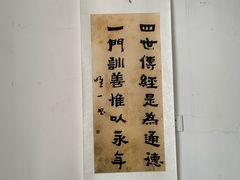 四世傳經是為通德
一門訓善惟以永年